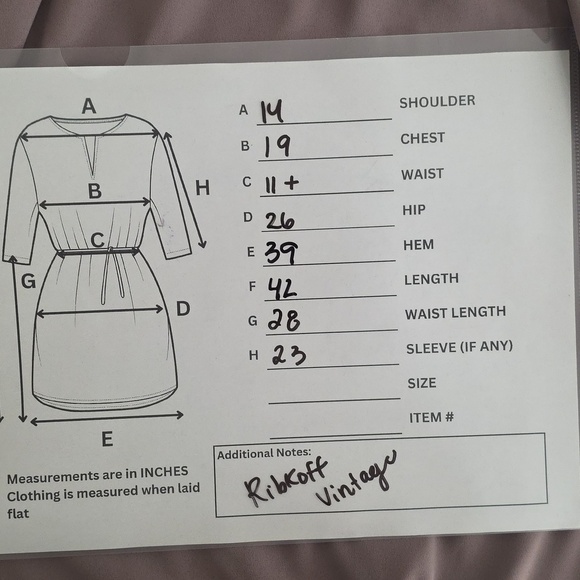 A
B
C
D
E
G
H
A 14 SHOULDER
B 19 CHEST
C 11+ WAIST
D 26 HIP
E 39 HEM
F 42 LENGTH
G 28 WAIST LENGTH
H 23 SLEEVE (IF ANY)
SIZE
ITEM #
Measurements are in INCHES
Clothing is measured when laid
flat
Additional Notes:
Ribkoff
Vintage